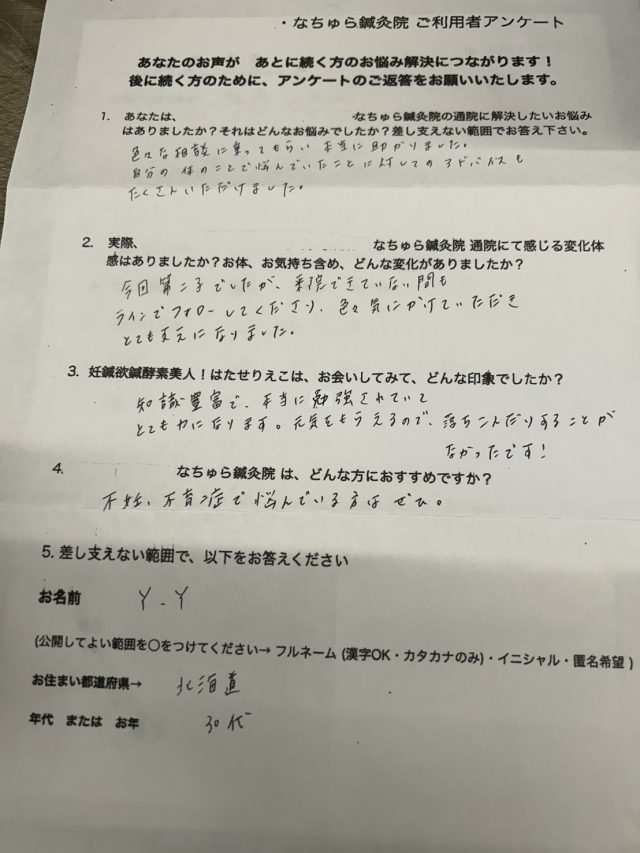 ・なちゅら鍼灸院 ご利用者アンケート
あなたのお声が あとに続く方のお悩み解決につながります！
後に続く方のために、アンケートのご返答をお願いいたします。
1. あなたは、 なちゅら鍼灸院の通院に解決したいお悩み
はありましたか？それはどんなお悩みでしたか？差し支えない範囲でお答え下さい。
色々な相談に乗ってもらい本当に助かりました。
自分の体のことで悩んでいたことに対してのアドバイスも
たくさんいただけました。
2. 実際、 なちゅら鍼灸院 通院にて感じる変化体
感はありましたか？お体、お気持ち含め、どんな変化がありましたか？
今回第二子でしたが、来院できていない間も
ラインでフォローしてくださり、色々気にかけていただき
とても支えになりました。
3. 妊鍼欲鍼酵素美人！はたせりえこは、お会いしてみて、どんな印象でしたか？
知識豊富で、本当に勉強されていて
とても力になります。元気をもらえるので、落ちこんだりすることが
なかったです！
4. なちゅら鍼灸院 は、どんな方におすすめですか？
不妊、不育症で悩んでいる方はぜひ。
5. 差し支えない範囲で、以下をお答えください
お名前 Y.Y
(公開してよい範囲を〇をつけてください→ フルネーム (漢字OK・カタカナのみ)・イニシャル・匿名希望 )
お住まい都道府県→ 北海道
年代 または お年 30代